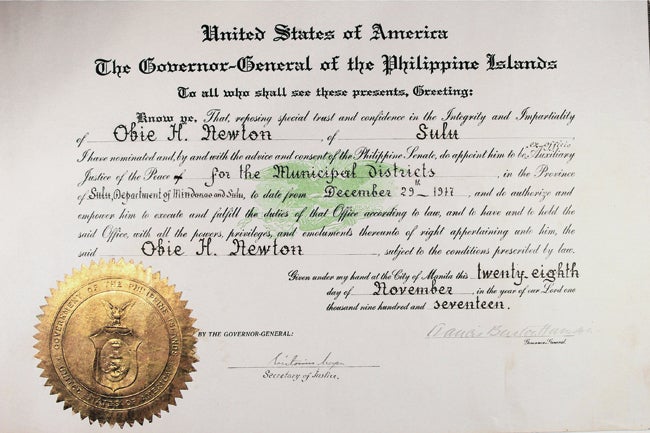 United States of America
The Governor-General of the Philippine Islands
To all who shall see these presents, Greeting:
Know ye, That, reposing special trust and confidence in the Integrity and Impartiality
of Obie H. Newton, of Sulu
I have nominated and, by and with the advice and consent of the Philippine Senate, do appoint him to be ex-officio Auxiliary
Justice of the Peace of for the Municipal districts, in the Province
of Sulu, Department of Mindanao and Sulu, to date from December 29th 1917, and do authorize and
empower him to execute and fulfill the duties of that Office according to law, and to have and to hold the
said Office, with all the powers, privileges, and emoluments thereunto of right appertaining unto him, the
said Obie H. Newton, subject to the conditions prescribed by law.
Given under my hand at the City of Manila this twenty eighth
day of November in the year of our Lord one
thousand nine hundred and seventeen.
GOVERNMENT OF THE PHILIPPINE ISLANDS
UNITED STATES OF AMERICA
BY THE GOVERNOR-GENERAL:
Francis Burton Harrison
Governor-General.
Secretary of Justice.